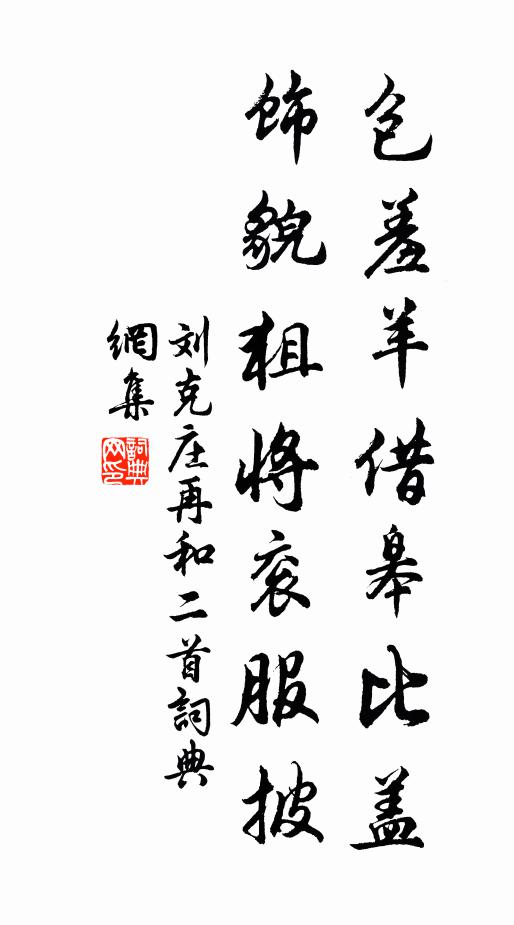 包羞羊借皋比盖
饰貌狙将衮服披
刘克庄再和二首詞典
網集
詞典网印